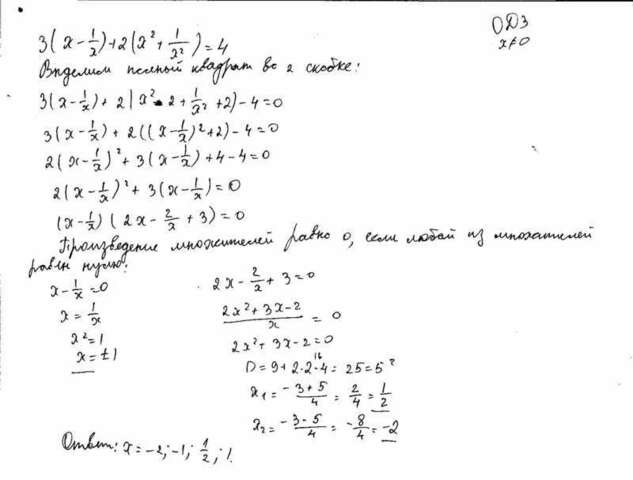 ОДЗ
x≠0
3(x - 1/x) + 2(x² + 1/x²) = 4
Выделим полный квадрат во 2 скобке:
3(x - 1/x) + 2(x² - 2 + 1/x² + 2) - 4 = 0
3(x - 1/x) + 2((x - 1/x)² + 2) - 4 = 0
2(x - 1/x)² + 3(x - 1/x) + 4 - 4 = 0
2(x - 1/x)² + 3(x - 1/x) = 0
(x - 1/x)(2x - 2/x + 3) = 0
Произведение множителей равно 0, если любой из множителей
равен нулю:
x - 1/x = 0
x = 1/x
x² = 1
x = ±1
2x - 2/x + 3 = 0
2x² + 3x - 2 / x = 0
2x² + 3x - 2 = 0
D = 9 + 2·2·4 = 25 = 5²
16
x₁ = -3+5 / 4 = 2/4 = 1/2
x₂ = -3-5 / 4 = -8/4 = -2
Ответ: x = -2; -1; 1/2; 1.